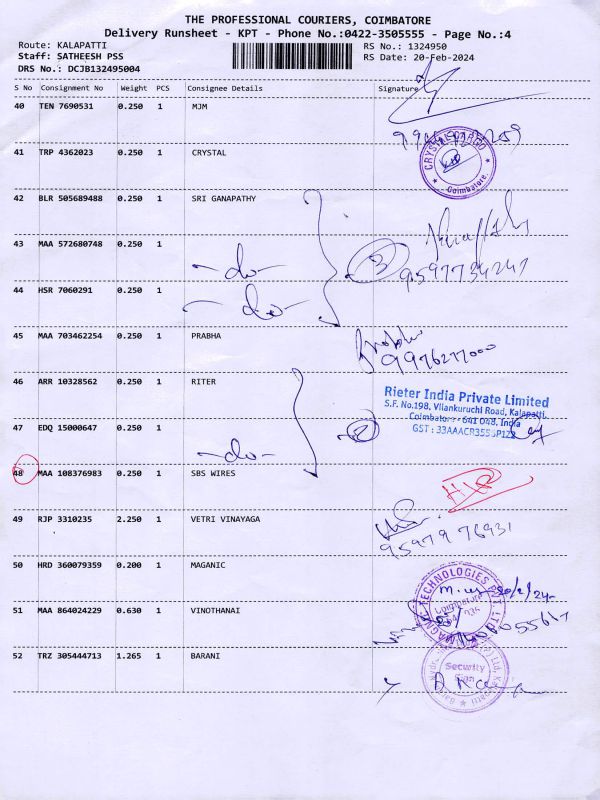 THE PROFESSIONAL COURIERS, COIMBATORE
Delivery Runsheet - KPT - Phone No.:0422-3505555 - Page No.:4
Route: KALAPATTI
Staff: SATHEESH PSS
DRS No.: DCJB132495004
RS No.: 1324950
RS Date: 20-Feb-2024
S No Consignment No Weight PCS Consignee Details Signature
40 TEN 7690531 0.250 1 MJM
41 TRP 4362023 0.250 1 CRYSTAL
CRYSTAL CARGO
Coimbatore.
42 BLR 505689488 0.250 1 SRI GANAPATHY
43 MAA 572680748 0.250 1
-do- 3
9597734247
44 HSR 7060291 0.250 1
-do-
45 MAA 703462254 0.250 1 PRABHA
9976277000
46 ARR 10328562 0.250 1 RITER
Rieter India Private Limited
S.F. No.198, Vilankuruchi Road, Kalapatti.
Coimbatore - 641 048. India
47 EDQ 15000647 0.250 1
GST : 33AAACR3555P1Z8
-do- 2
48 MAA 108376983 0.250 1 SBS WIRES
49 RJP 3310235 2.250 1 VETRI VINAYAGA
9597976931
50 HRD 360079359 0.200 1 MAGANIC
51 MAA 864024229 0.630 1 VINOTHANAI
52 TRZ 305444713 1.265 1 BARANI
Security
Sign